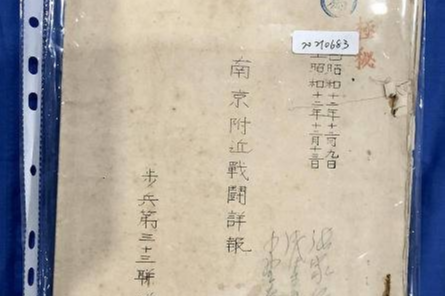 20210683
極秘
自昭和十二年十二月九日
至昭和十二年十二月十三日
南京附近戰鬪詳報
步兵第三十三聯